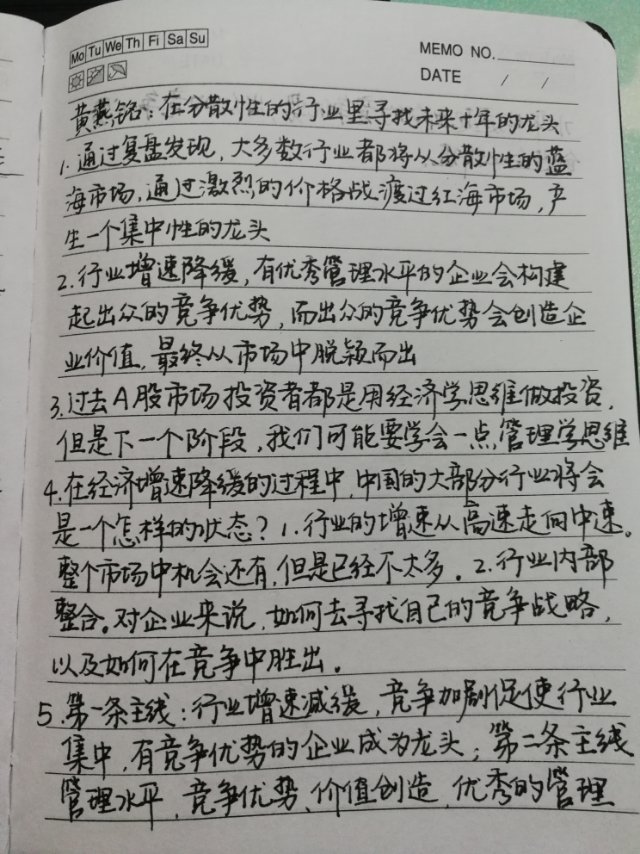 Mo Tu We Th Fr Sa Su
MEMO NO.
DATE / /
黄燕铭:在分散性的行业里寻找未来十年的龙头
1.通过复盘发现,大多数行业都将从分散性的蓝
海市场,通过激烈的价格战渡过红海市场,产
生一个集中性的龙头
2.行业增速降缓,有优秀管理水平的企业会构建
起出众的竞争优势,而出众的竞争优势会创造企
业价值,最终从市场中脱颖而出
3.过去A股市场投资者都是用经济学思维做投资,
但是下一个阶段,我们可能要学会一点管理学思维
4.在经济增速降缓的过程中,中国的大部分行业将会
是一个怎样的状态?1.行业的增速从高速走向中速。
整个市场中机会还有,但是已经不太多。2.行业内部
整合。对企业来说,如何去寻找自己的竞争战略,
以及如何在竞争中胜出。
5.第一条主线:行业增速减缓,竞争加剧促使行业
集中,有竞争优势的企业成为龙头;第二条主线
管理水平,竞争优势、价值创造,优秀的管理